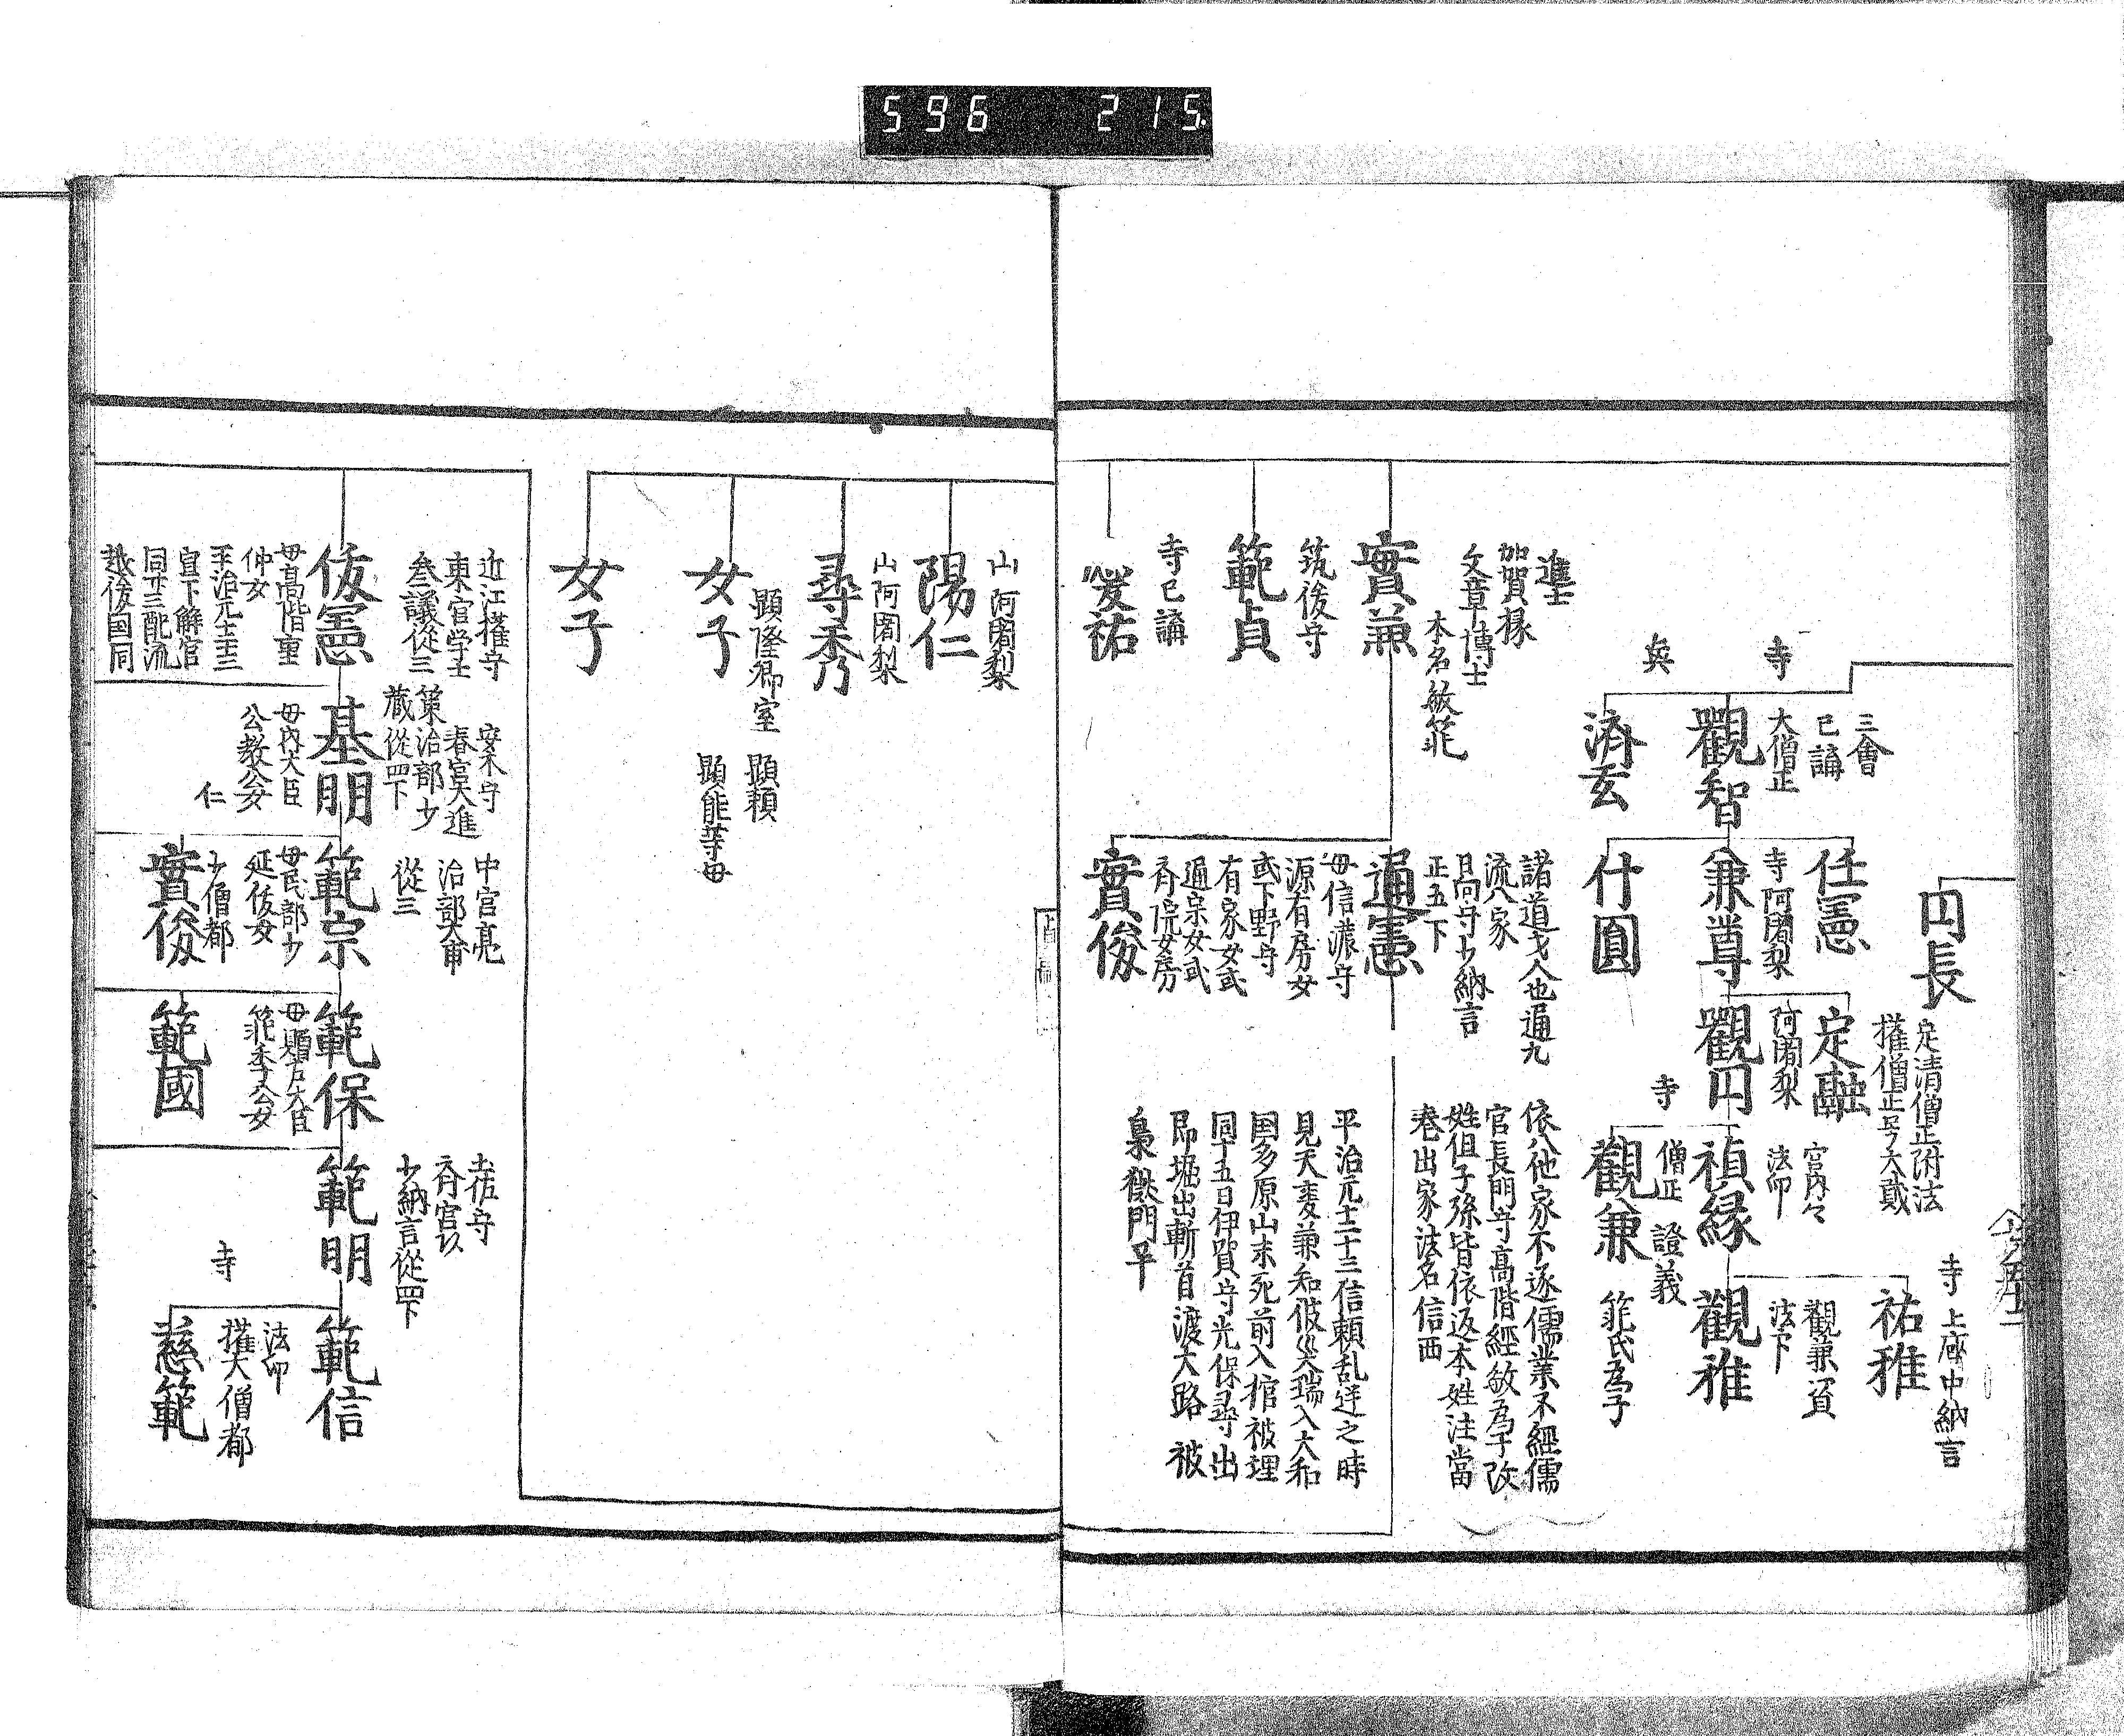 596 215
円長
定清僧正附法
権僧正号大貳
寺上座中納言
三會
已講
大僧正
寺
觀智
㒵
済玄
任憲
寺阿闍梨
兼尊
什圓
定融
阿闍梨
觀円
宮内々
法印
禎縁
寺
僧正 證義
觀兼
範氏為子
祐雅
觀兼資
法下
觀雅
進士
加賀掾
文章博士
本名敏範
實兼
筑後守
範貞
寺已講
祐
諸道才人也通九
流八家
日向守少納言
正五下
通憲
母信濃守
源有房女
或下野守
有家女或
通宗女或
斉院女房
依入他家不遂儒業不經儒
官長門守高階經敏為子改
姓但子孫皆依返本姓注當
巻出家法名信西
平治元十二十三信頼乱逆之時
見天変兼知彼災瑞入大和
国多原山未死前入棺被埋
同十五日伊賀守光保尋出
即堀出斬首渡大路 被
梟獄門平
實俊
山阿闍梨
陽仁
山阿闍梨
尋秀
顕隆卿室 顕頼
顕能等母
女子
女子
近江権守
東宮学士
叄議從三
俊憲
母高階重
仲女
平治元十二十三
宣下解官
同廿三配流
越後国同
安木守
春宮大進
策治部少
蔵從四下
基明
母内大臣
公教公女
仁
中宮亮
治部大甫
從三
範宗
母民部少
延俊女
少僧都
實俊
範保
母贈左大臣
範季公女
範國
土佐守
斉官以
少納言從四下
範明
寺
範信
法印
権大僧都
慈範